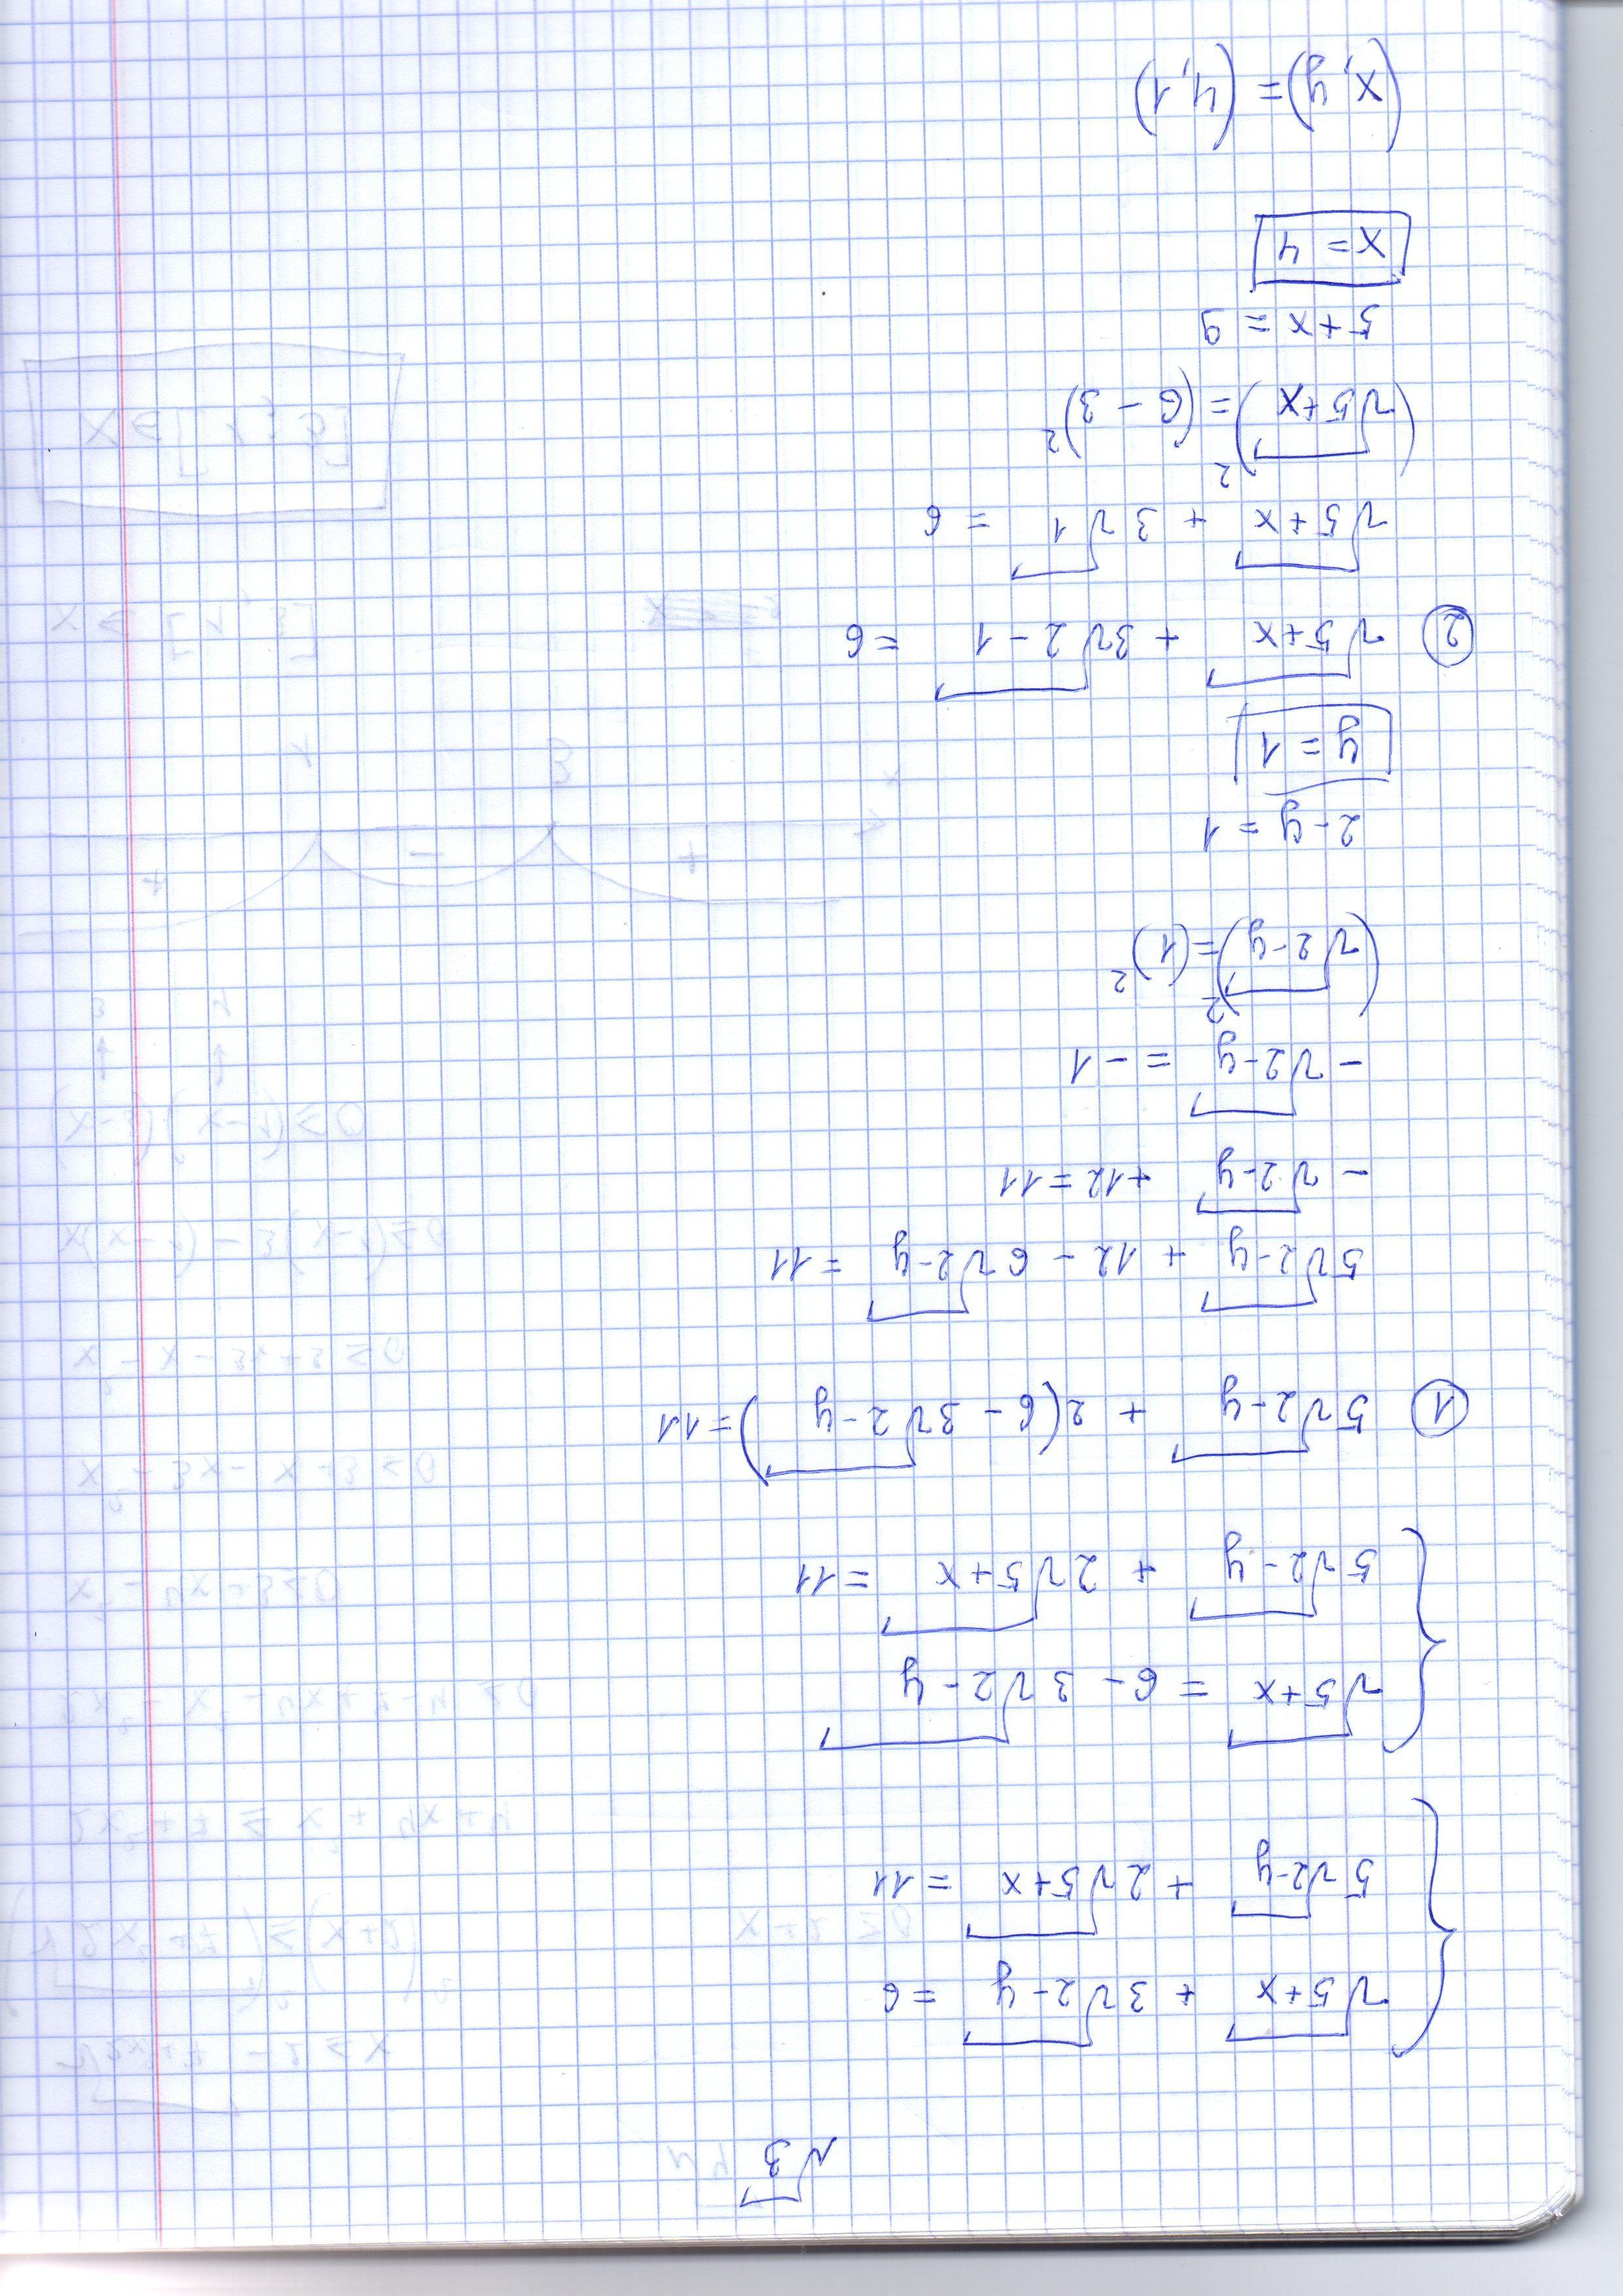 √3
√5+x + 3√2-y = 6
5√2-y + 2√5+x = 11
√5+x = 6 - 3√2-y
5√2-y + 2√5+x = 11
① 5√2-y + 2(6 - 3√2-y) = 11
5√2-y + 12 - 6√2-y = 11
- √2-y + 12 = 11
- √2-y = -1
(√2-y)² = (1)²
2-y = 1
y = 1
② √5+x + 3√2-1 = 6
√5+x + 3√1 = 6
(√5+x)² = (6-3)²
5+x = 9
x = 4
(x, y) = (4, 1)